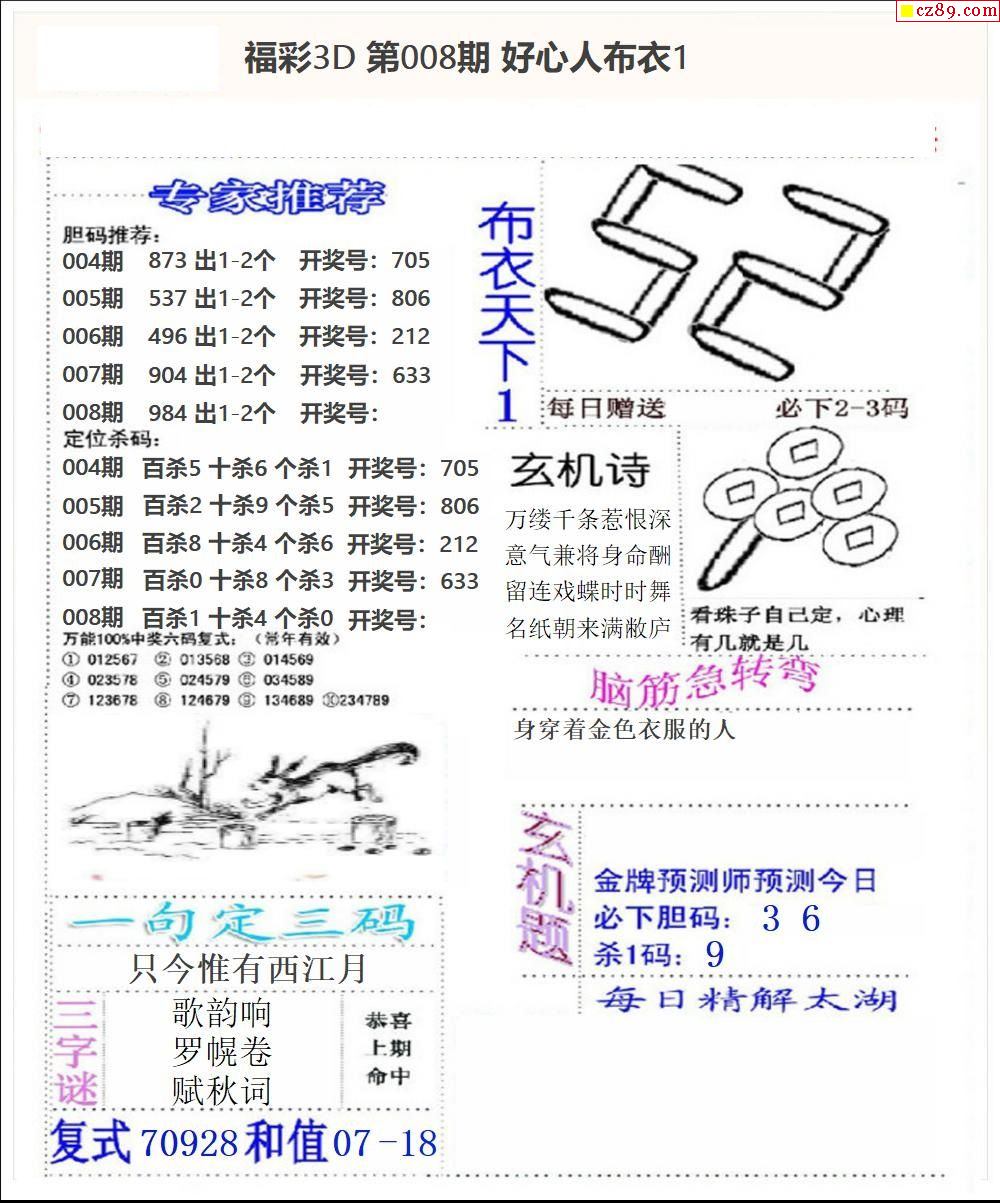 cz89.com
福彩3D 第008期 好心人布衣1
专家推荐
胆码推荐：
004期 873 出1-2个 开奖号：705
005期 537 出1-2个 开奖号：806
006期 496 出1-2个 开奖号：212
007期 904 出1-2个 开奖号：633
008期 984 出1-2个 开奖号：
定位杀码：
004期 百杀5 十杀6 个杀1 开奖号：705
005期 百杀2 十杀9 个杀5 开奖号：806
006期 百杀8 十杀4 个杀6 开奖号：212
007期 百杀0 十杀8 个杀3 开奖号：633
008期 百杀1 十杀4 个杀0 开奖号：
万能100%中奖六码复式：（常年有效）
① 012567 ② 013568 ③ 014569
④ 023578 ⑤ 024579 ⑥ 034589
⑦ 123678 ⑧ 124679 ⑨ 134689 ⑩234789
一句定三码
只今惟有西江月
三字谜
歌韵响
罗幌卷
赋秋词
恭喜
上期
命中
复式 70928 和值 07-18
布衣天下1
52
每日赠送 必下2-3码
玄机诗
万缕千条惹恨深
意气兼将身命酬
留连戏蝶时时舞
名纸朝来满敝庐
看珠子自己定，心理
有几就是几
脑筋急转弯
身穿着金色衣服的人
玄机题
金牌预测师预测今日
必下胆码：3 6
杀1码：9
每日精解太湖